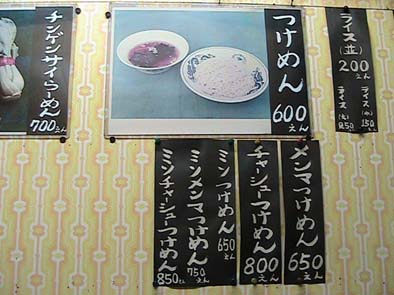 チンゲンサイらーめん
700えん
つけめん
600えん
ライス(並)
200えん
ライス(小)150
ライス(大)250
メンマつけめん
650えん
チャーシューつけめん
800えん
ミンつけめん
650えん
ミンメンマつけめん
750えん
ミンチャーシューつけめん
850えん